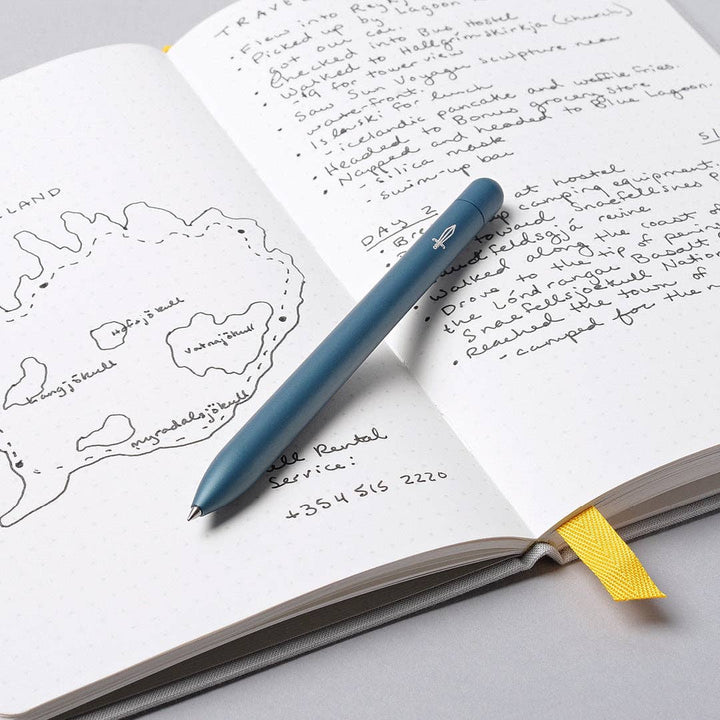 LAND
Hofsjökull
Vatnajökull
Langjökull
myradalsjökull
Rental
Service:
+354 515 2220
TRAVEL
• Flew into Reyk
• Picked up by Lagoon
got our car
• Checked into Bus Hostel
• Walked to Hallgrimskirkja (church)
-$9 for tower view
• Saw Sun Voyager sculpture near
waterfront.
• Islenski for lunch
-icelandic pancake and waffle fries.
• Headed to Bonus grocery store
• Napped and headed to Blue Lagoon.
- silica mask
- swim-up bar
DAY 2
at hostel
up camping equipment
toward Snaefellsnes p
ravine
• Walked along the coast of
• Drove to the tip of penin
the Lóndrangar Basalt
Snaefellsjökull Nation
• Reached the town of
- camped for the n